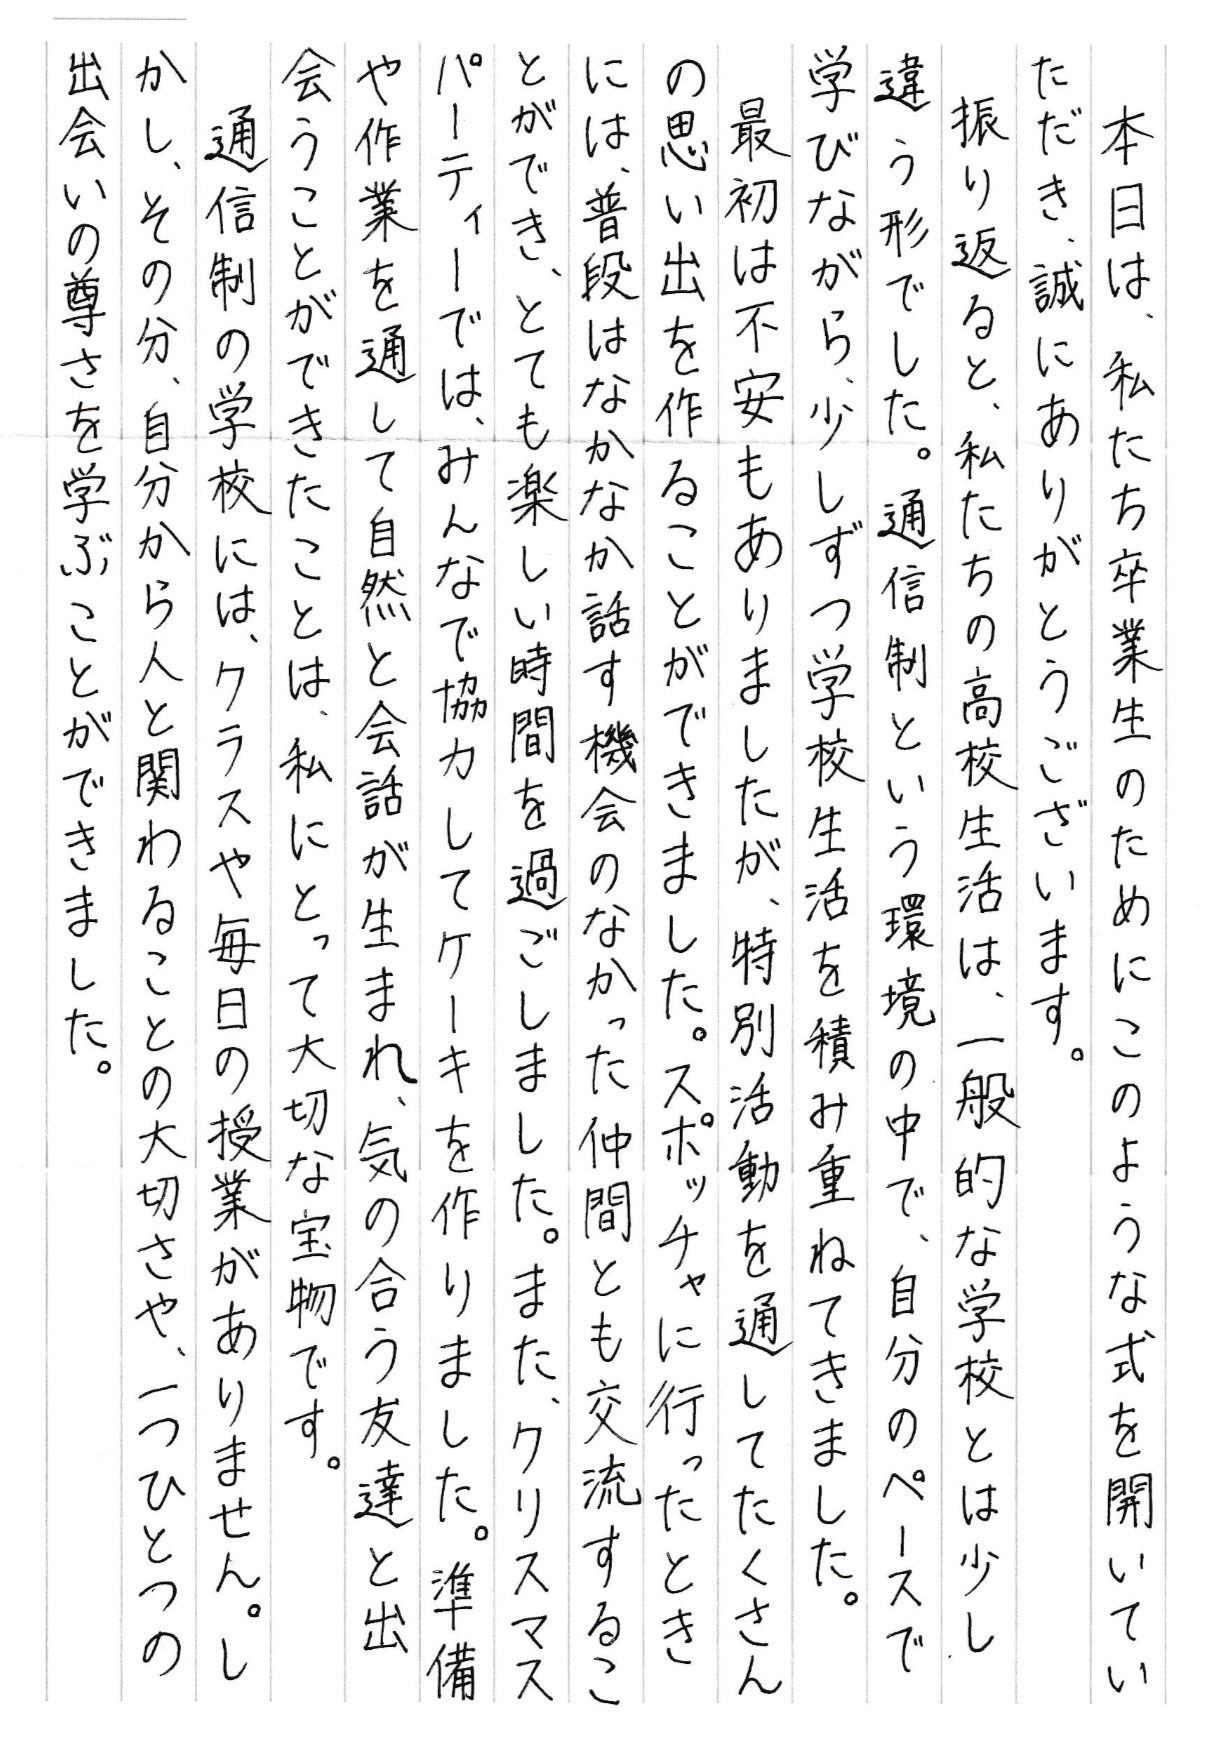 本日は、私たち卒業生のためにこのような式を開いてい
ただき、誠にありがとうございます。
振り返ると、私たちの高校生活は、一般的な学校とは少し
違う形でした。通信制という環境の中で、自分のペースで
学びながら、少しずつ学校生活を積み重ねてきました。
最初は不安もありましたが、特別活動を通してたくさん
の思い出を作ることができました。スポッチャに行ったとき
には、普段はなかなか話す機会のなかった仲間とも交流するこ
とができ、とても楽しい時間を過ごしました。また、クリスマス
パーティーでは、みんなで協力してケーキを作りました。準備
や作業を通して自然と会話が生まれ、気の合う友達と出
会うことができたことは、私にとって大切な宝物です。
通信制の学校には、クラスや毎日の授業がありません。し
かし、その分、自分から人と関わることの大切さや、一つひとつの
出会いの尊さを学ぶことができました。